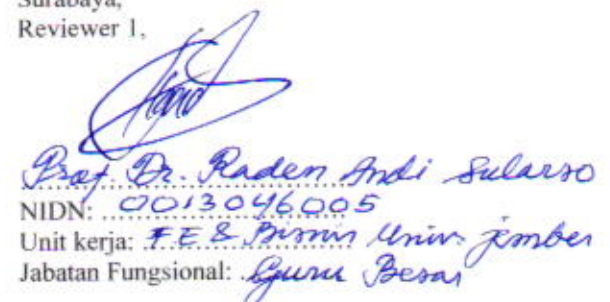 Surabaya,
Reviewer 1,
Prof. Dr. Raden Andi Sularso
NIDN: 0013046005
Unit kerja: F E & Bisnis Univ. Jember
Jabatan Fungsional: Guru Besar